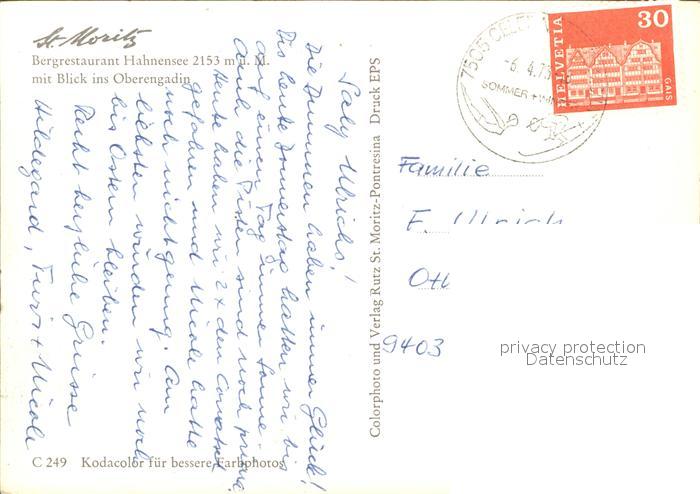 St. Moritz
Bergrestaurant Hahnensee 2153 m ü. M.
mit Blick ins Oberengadin
Saly Ullrichs!
Die Dummen haben immer Glück!
Bis heute Donnerstag hatten wir bis
auf einen Tag immer Sonne –
auch die Pisten sind noch prima.
Heute haben wir 2x den Corvatsch
gefahren und Nicole hatte
noch nicht genug. Am
liebsten würden wir noch
bis Ostern bleiben.
Recht herzliche Grüsse
Hildegard, + Nicole
C 249 Kodacolor für bessere Farbphotos
Colorphoto und Verlag Rutz St. Moritz-Pontresina Druck EPS
7505 CELE
-6. 4.
SOMMER + WIN
HELVETIA
30
GAIS
Familie
9403
privacy protection
Datenschutz